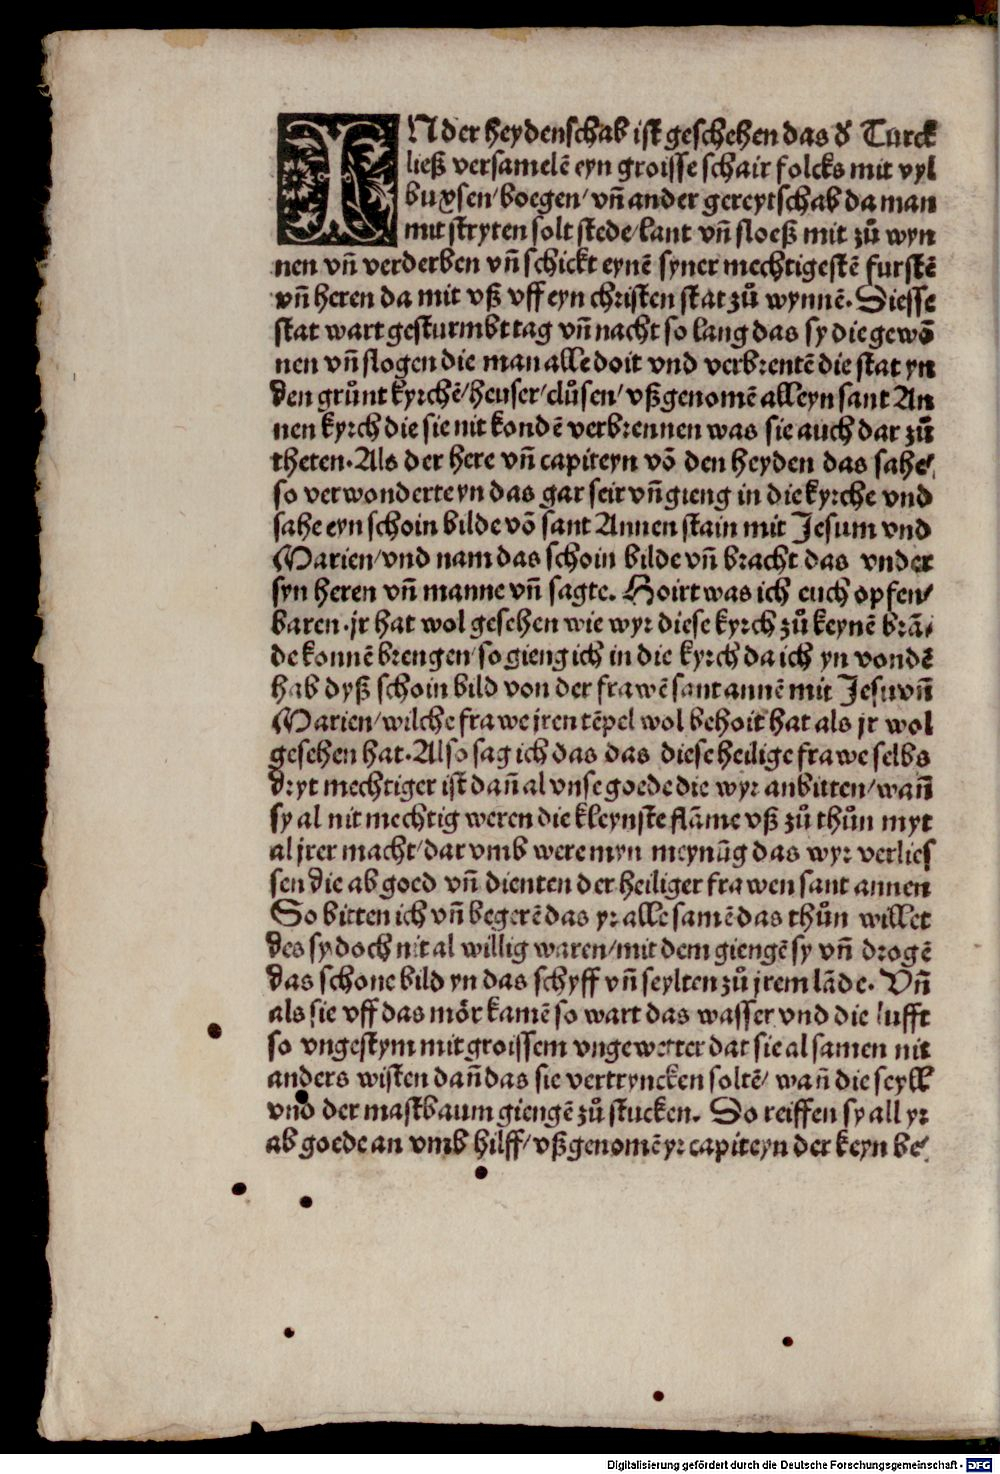 IN der heydenschab ist geschehen das d̕ Turck
ließ versamelē eyn groisse schair folcks mit vyl
buxsen/ boegen/ vñ ander gereytschab da man
mit stryten solt stede/ lant vñ sloeß mit zů wyn
nen vñ verderben vñ schickt eynē syner mechtigestē furstē
vñ heren da mit vß vff eyn christen stat zů wynnē. Diesse
stat wart gesturmbt tag vñ nacht so lang das sy die gewō
nen vñ slogen die man alle doit vnd verbrentē die stat yn
den grůnt kyrchē/ heuser/ clůsen/ vßgenomē alleyn sant An
nen kyrch die sie nit kondē verbrennen was sie auch dar zů
theten. Als der here vñ capiteyn vō den heyden das sahe/
so verwonderte yn das gar seir vñ gieng in die kyrche vnd
sahe eyn schoin bilde vō sant Annen stain mit Jesum vnd
Marien/ vnd nam das schoin bilde vñ bracht das vnder
syn heren vñ manne vñ sagte. Hoirt was ich euch opfen/
baren. jr hat wol gesehen wie wyr diese kyrch zů keynē brā/
de konnē brengen/ so gieng ich in die kyrch da ich yn vondē
hab dyß schoin bild von der frawē sant annē mit Jesu vñ
Marien/ wilche frawe jren tēpel wol behoit hat als jr wol
gesehen hat. Also sag ich das das diese heilige frawe selbs
dryt mechtiger ist dañ al vnse goede die wyr anbitten/ wañ
sy al nit mechtig weren die kleynste flāme vß zů thůn myt
al jrer macht/ dar vmb were myn meynūg das wyr verlies
sen die abgoed vñ dienten der heiliger frawen sant annen
So bitten ich vñ begerē das yr alle samē das thůn willet
des sy doch nit al willig waren/ mit dem giengē sy vñ drogē
das schone bild yn das schyff vñ seylten zů jrem lāde. Vñ
als sie vff das mör kamē so wart das wasser vnd die lufft
so vngestym mit groissem vngewetter dat sie al samen nit
anders wisten dañ das sie vertryncken soltē/ wañ die seyll
vnd der mastbaum giengē zů stucken. So reiffen sy all yr
abgoede an vmb hilff/ vßgenomē yr capiteyn der keyn be/
Digitalisierung gefördert durch die Deutsche Forschungsgemeinschaft - DFG